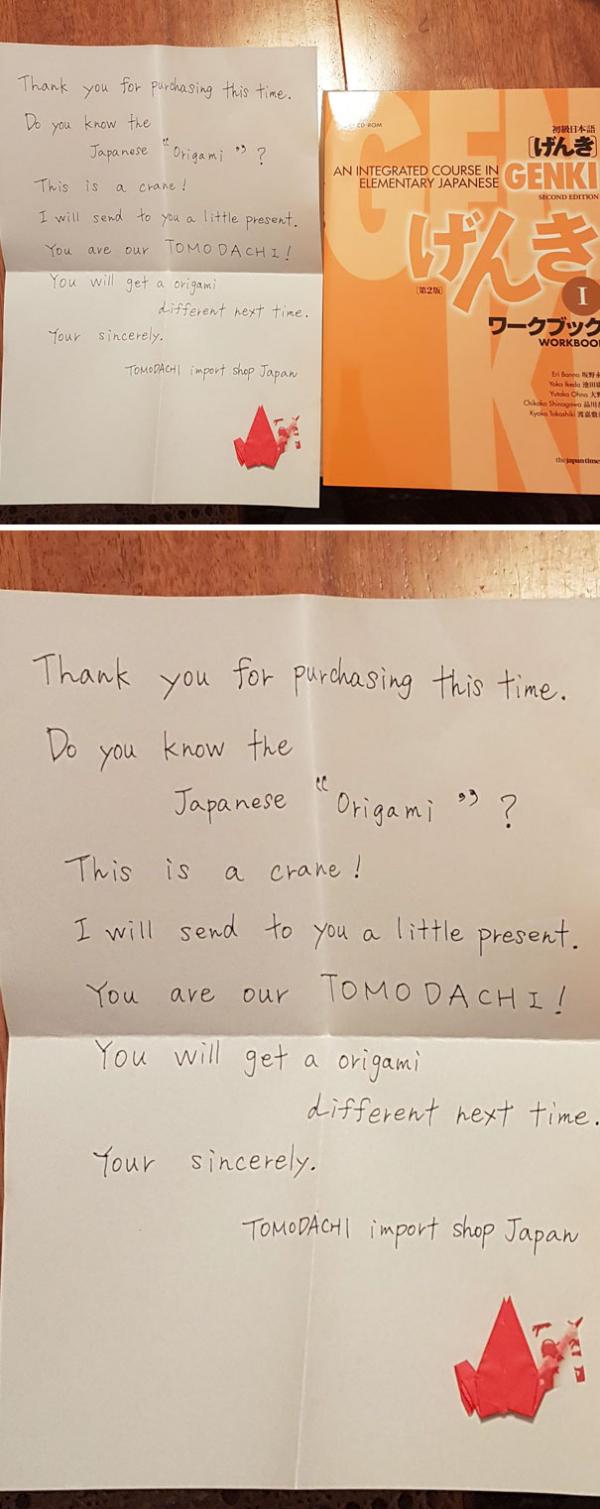 Thank you for purchasing this time.
Do you know the
Japanese "Origami"?
This is a crane!
I will send to you a little present.
You are our TOMODACHI!
You will get a origami
different next time.
Your sincerely.
TOMODACHI import shop Japan
CD-ROM
初級日本語
[げんき]
AN INTEGRATED COURSE IN
ELEMENTARY JAPANESE
GENKI
SECOND EDITION
げんき
[第2版]
I
ワークブック
WORKBOOK
Eri Banno
Yoko Ikeda
Yutaka Ohno
Chikako Shinagawa
Kyoko Tokashiki
the japan times
Thank you for purchasing this time.
Do you know the
Japanese "Origami"?
This is a crane!
I will send to you a little present.
You are our TOMODACHI!
You will get a origami
different next time.
Your sincerely.
TOMODACHI import shop Japan